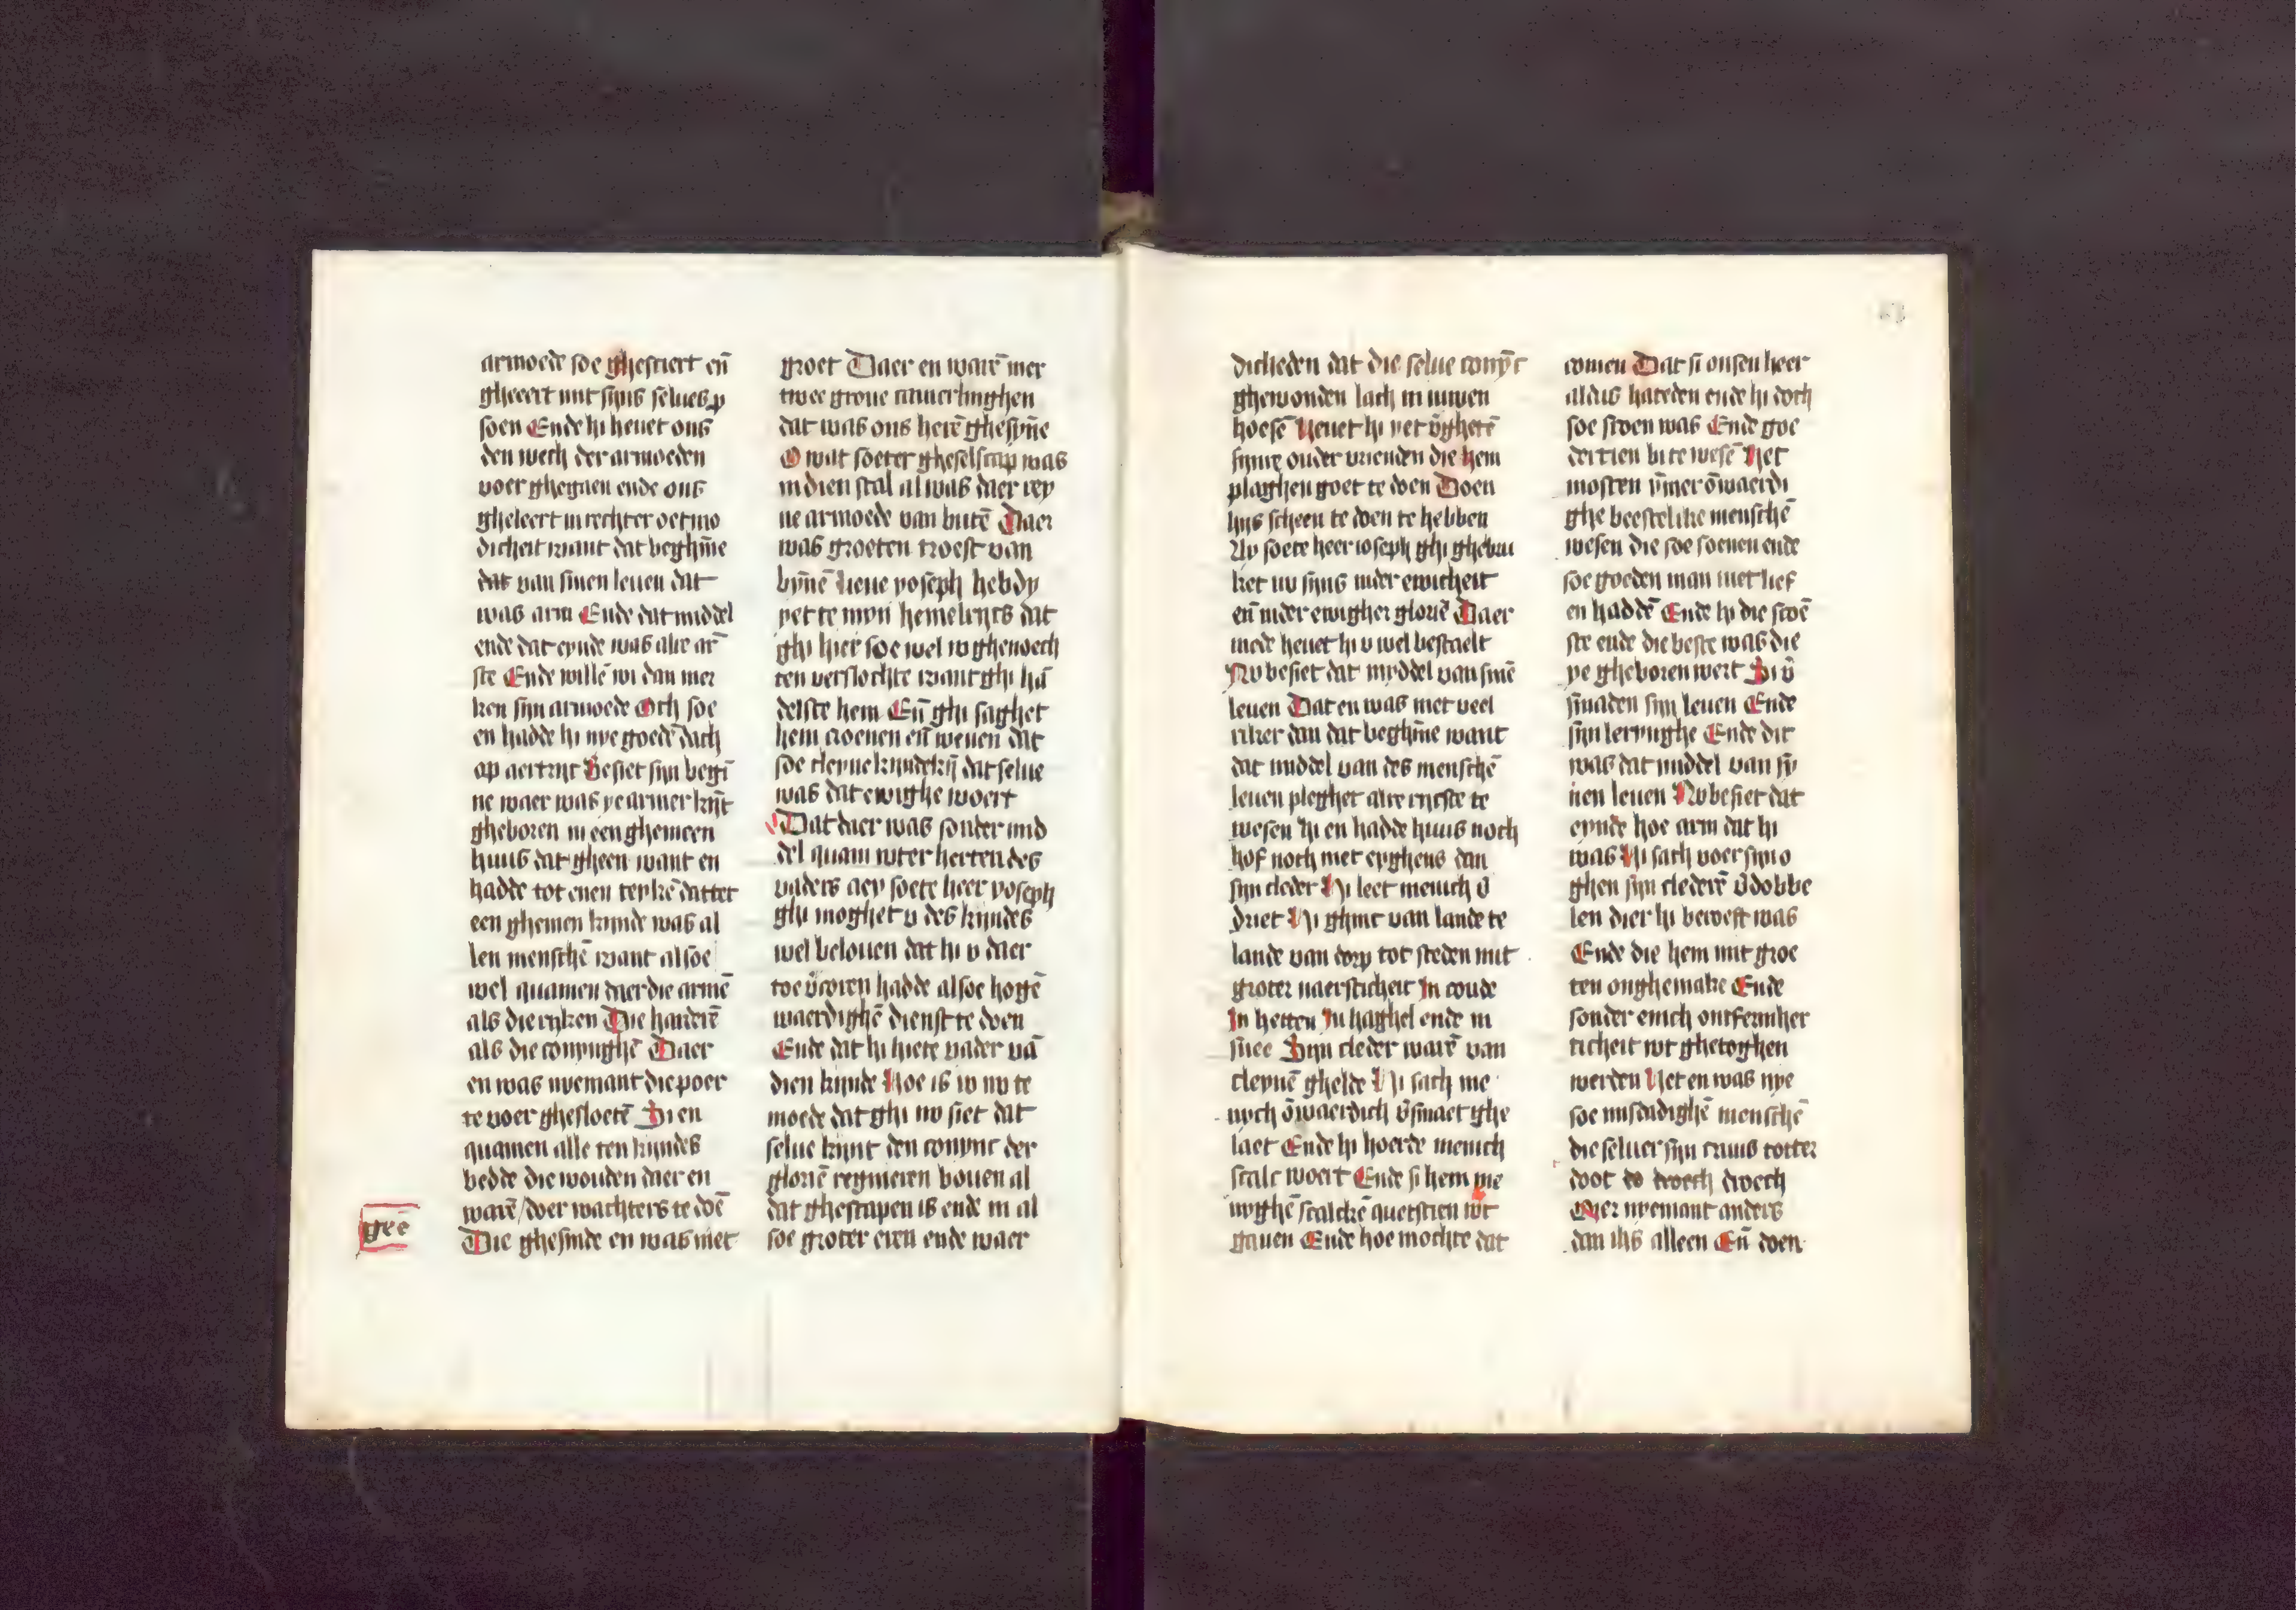 armoede soe ghesciert en̄
gheeert mit sijns selues ꝑ
soen Ende hi heuet ons
den wech der armoeden
voer ghegaen ende ons
gheleert in rechter oetmo
dicheit want dat beghīne
dat van sinen leuen dat
was arm Ende dat middel
ende dat eynde was alre ar̄
ste Ende willē wi dan mer
ken sijn armoede Och soe
en hadde hi nye goedē dach
op aertrijc Besiet sijn begī
ne waer was ye armer kīt
gheboren in een ghemeen
huus dat gheen want en
hadde tot enen teykē dattet
een ghemen kijnde was al
len menschē want alsoe
wel quamen daer die armē
als die ryken Die harderē
als die conynghē Daer
en was nyemant die poer
te voer ghesloetē Si en
quamen alle ten kijndes
bedde die wouden daer en
warē / doer wachters te doē
gee
Die ghesinde en was niet
groet Daer en warē mer
twee groue camerlinghen
dat was ons herē ghesyne
O wat soeter gheselscap was
in dien stal al was daer rey
ne armoede van butē Daer
was groeten troest van
bynē Lieue yoseph hebdy
yet te myn hemelrycs dat
ghi hier soe wel w ghenoech
ten verslochte want ghi hā
delste hem En̄ ghi saghet
hem croenen en̄ wenen dat
soe cleyne kijndekij̄ dat selue
was dat ewighe woert
Dat daer was sonder mid
del quam wter herten des
vaders aey soete heer yoseph
ghi moghet v des kijndes
wel belouen dat hi v daer
toe v̄coren hadde alsoe hogē
waerdighē dienst te doen
Ende dat hi hiete vader vā
dien kijnde Hoe is w nv te
moede dat ghi nv siet dat
selue kijnt den conync der
gloriē regnieren bouen al
dat ghescapen is ende in al
soe groter eren ende waer
dicheden dat die selue conȳc
ghewonden lach in uwen
hoesē Heuet hi yet v̄ghetē
synre ouder vrienden die hem
plaghen goet te doen Doen
hijs scheen te doen te hebben
Ay soete heer ioseph ghi ghebru
ket uv sijns in der ewicheit
en̄ in der ewigher gloriē Daer
mede heuet hi v wel bestaelt
Nv besiet dat myddel van sinē
leuen Dat en was niet veel
riker dan dat beghīne want
dat middel van des menschē
leuen pleghet alre rycste te
wesen Hi en hadde huus noch
hof noch niet eyghens dan
sijn cleder Hi leet menich v̄
driet Hi ghinc van lande te
lande van dorp tot steden mit
groter naersticheit In coude
In hetten In haghel ende in
snee Sijn cleder warē van
cleynē ghelde Hi sach me
nych ōwaerdich v̄smaet ghe
laet Ende hi hoerde menich
scalc woert Ende si hem me
nyghē scalckē quetstien wt
gauen Ende hoe mochte dat
comen Dat si onsen heer
aldus hateden ende hi doch
soe scoen was Ende goe
dertien bi te wesē Het
mosten ȳmer ōwaerdi
ghe beestelike menschē
wesen die soe scoenen ende
soe goeden man niet lief
en haddē Ende hi die scoē
ste ende die beste was die
ye gheboren wert Si v̄
smaden sijn leuen Ende
sijn leringhe Ende dit
was dat middel van sȳ
nen leuen Nv besiet dat
eynde hoe arm dat hi
was Hi sach voer sijn o
ghen sijn clederē v̄dobbe
len dier hi beroeft was
Ende die hem mit groe
ten onghemake Ende
sonder enich ontfermher
ticheit wt ghetoghen
werden Het en was nye
soe misdadighē menschē
die seluer sijn cruus totter
doot to droech droech
Mer nyemant anders
dan ihs alleen En̄ doen